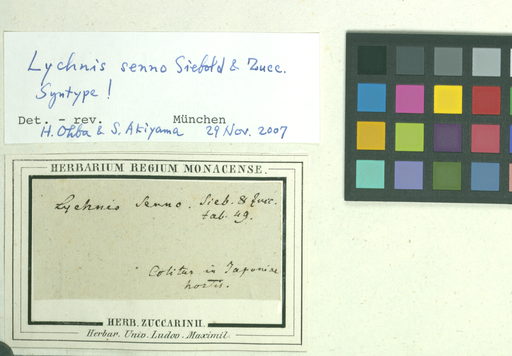 Lychnis senno Siebold & Zucc.
Syntype!
Det. - rev. München
H. Ohba & S. Akiyama 29 Nov. 2007
HERBARIUM REGIUM MONACENSE.
Lychnis Senno. Sieb. & Zucc.
tab. 49.
Colitur in Japoniae
hortis.
HERB. ZUCCARINII.
Herbar. Univ. Ludov. Maximil.